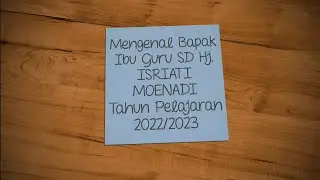 Mengenal Bapak
Ibu Guru SD Hj.
ISRIATI
MOENADI
Tahun Pelajaran
2022/2023